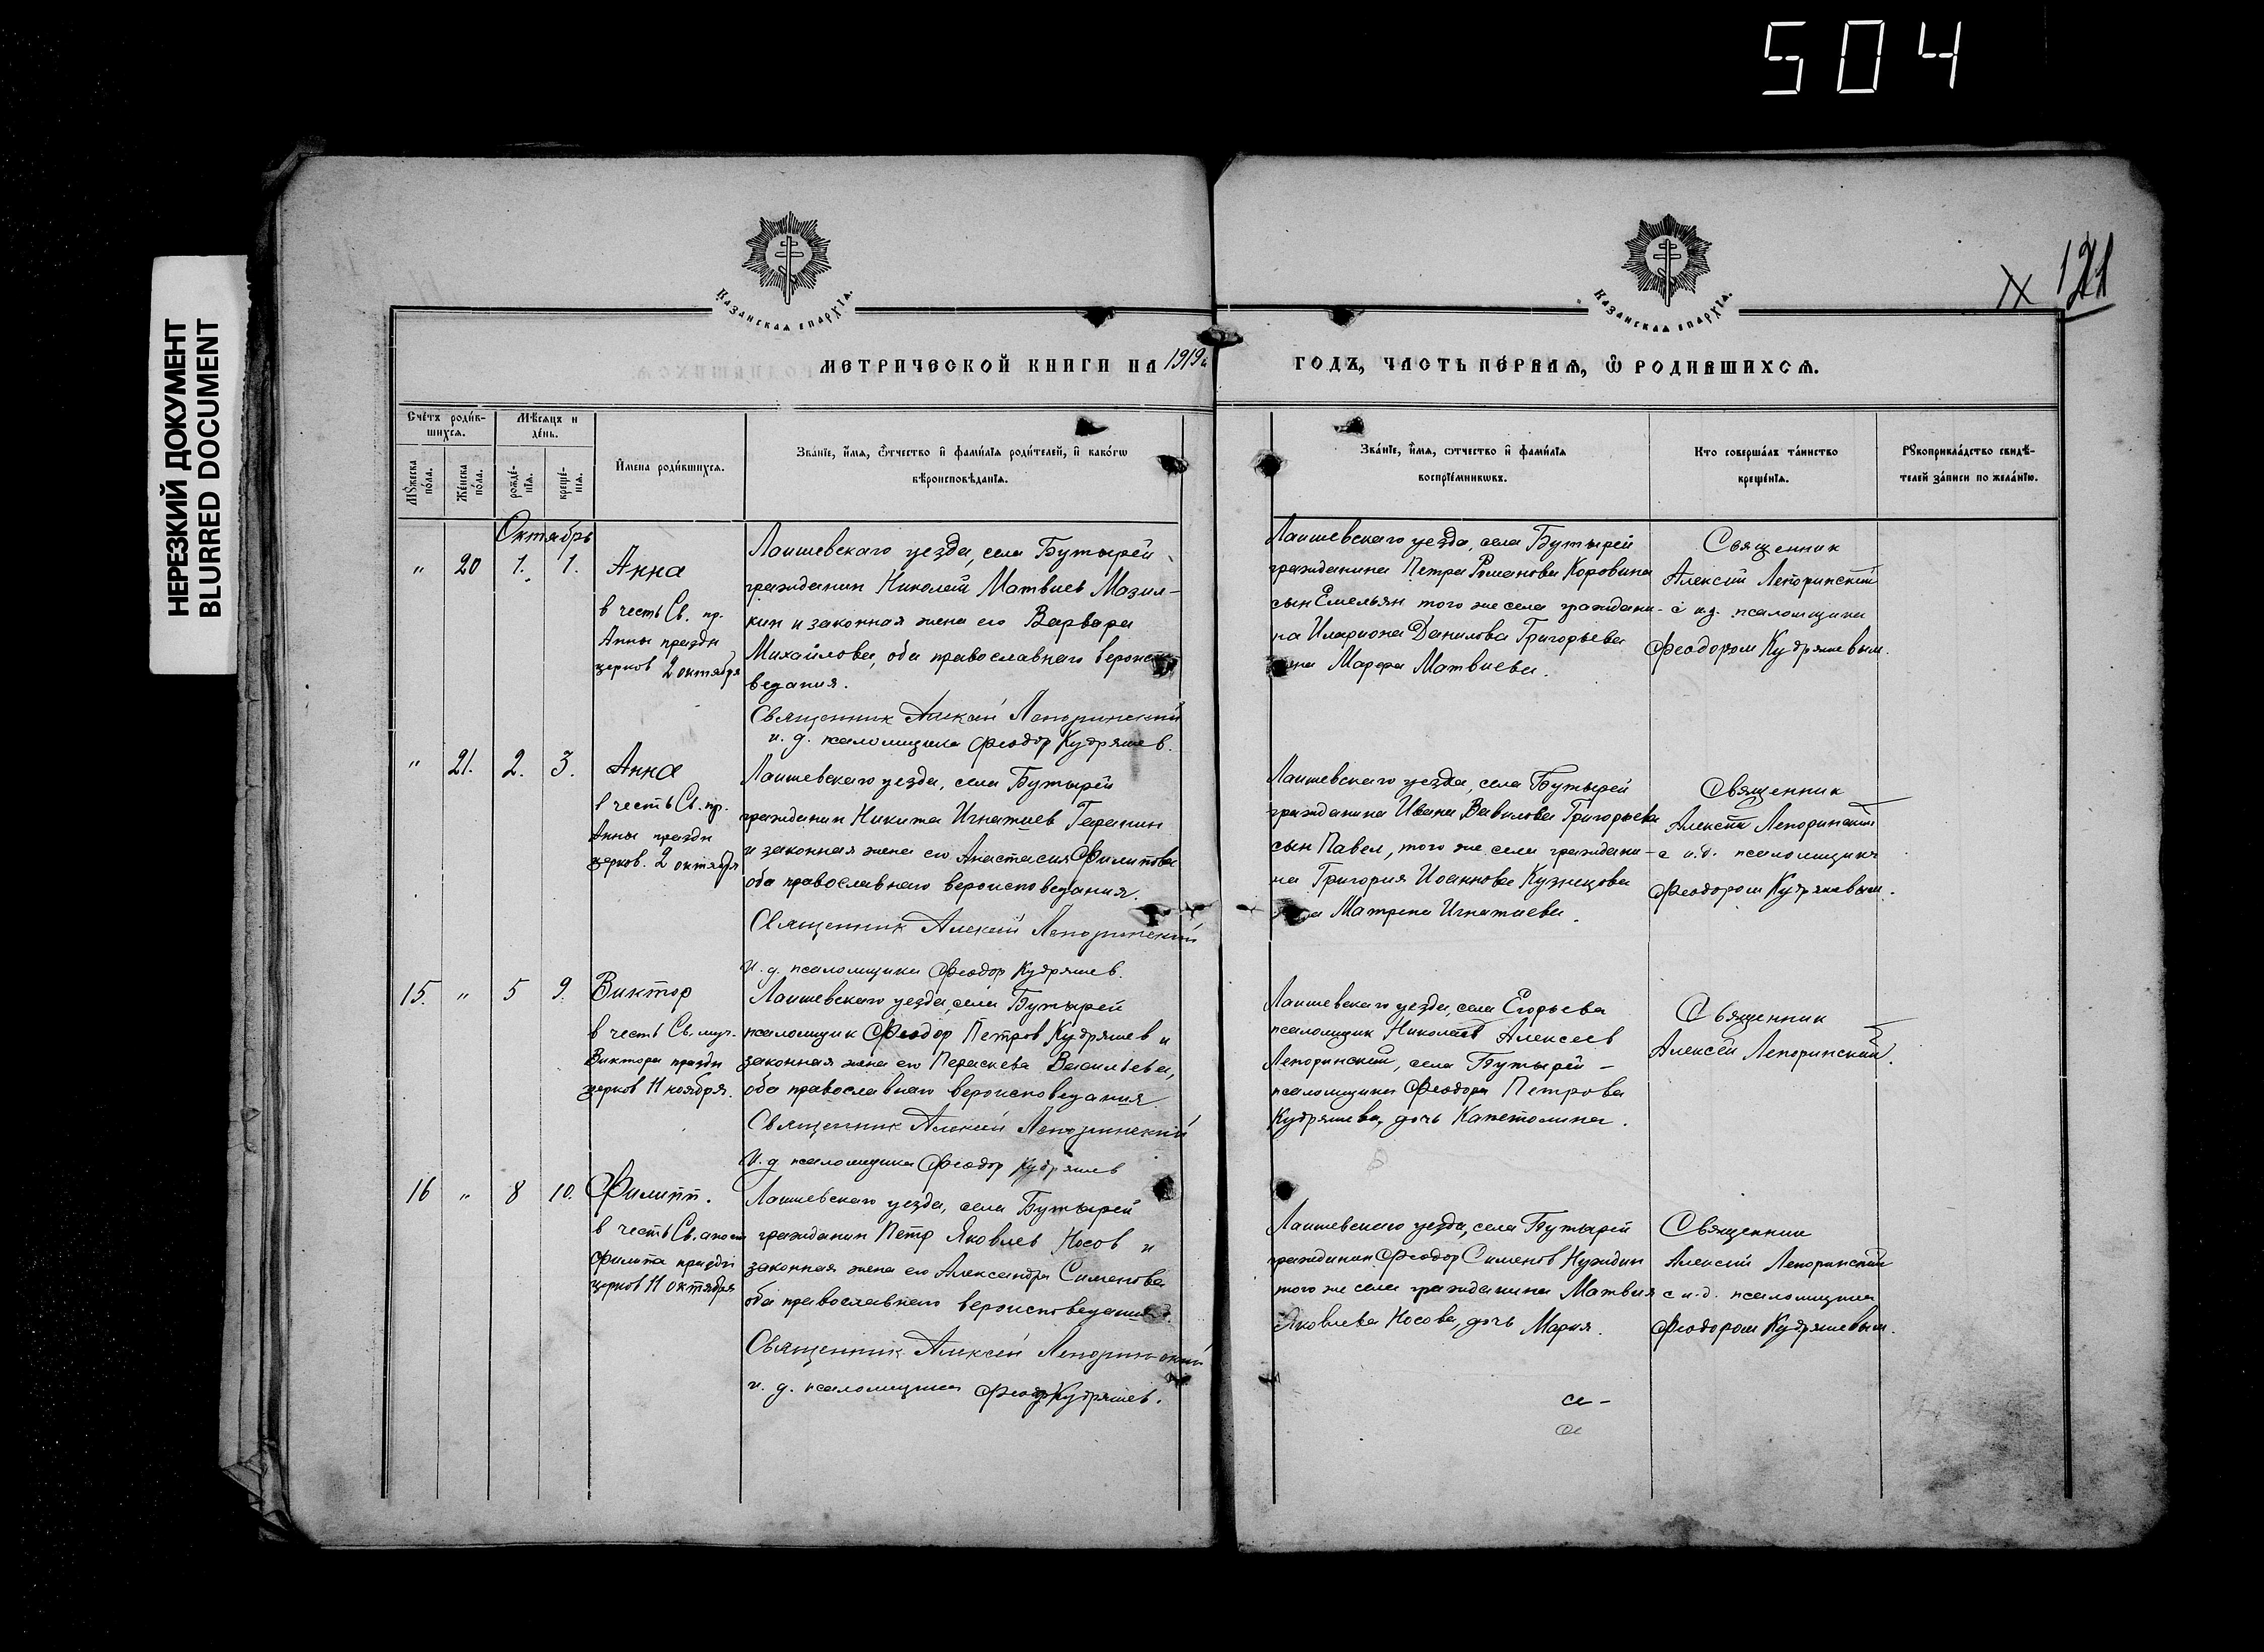 504
НЕРЕЗКИЙ ДОКУМЕНТ
BLURRED DOCUMENT
КАЗАНСКАЯ ЕПАРХІЯ.
КАЗАНСКАЯ ЕПАРХІЯ.
121
МЕТРИЧЕСКОЙ КНИГИ НА 1919й
ГОДЪ, ЧАСТЬ ПЕРВАЯ, Ѡ РОДИВШИХСЯ.
Счетъ родив-
шихся.
Мѣсяцъ и
день.
Мꙋжеска
пола.
Женска
пола.
рожде-
нія.
креще-
нія.
Имена родившихся.
Званіе, имя, ѻтчество и фамилія родителей, и какогѡ
вѣроисповѣданія.
Званіе, имя, ѻтчество и фамилія
воспріемникѡвъ.
Кто совершалъ таинство
крещенія.
Рꙋкоприкладство свидѣ-
телей записи по желанію.
Октябрь
" 20 1. 1.
Анна
в честь Св. пр.
Анны праздн
церков 2 октября
Лаишевскаго уезда, села Бутырей
гражданин Николай Матвиев Мазил-
кин и законная жена его Варвара
Михайлова, оба православнаго вероиспо-
ведания.
Священник Алексей Лепоринский
и. д. псаломщика Феодор Кудряшев.
Лаишевскаго уезда, села Бутырей
гражданина Петра Романова Коровина
сын Емельян того же села граждани-
на Илариона Данилова Григорьева
жена Марфа Матвиева.
Священник
Алексий Лепоринский
с и.д. псаломщика
Феодором Кудряшевым.
" 21. 2. 3.
Анна
в честь Св. пр.
Анны праздн
церков. 2 октября
Лаишевскаго уезда, села Бутырей
гражданин Никита Игнатиев Гаранин
и законная жена его Анастасия Филипова
оба православнаго вероисповедания.
Священник Алексей Лепоринский
И. д. псаломщика Феодор Кудряшев.
Лаишевскаго уезда, села Бутырей
гражданина Ивана Вавилова Григорьева
сын Павел, того же села граждани-
на Григория Иоаннова Кузнецова
жена Матрена Игнатиева.
Священник
Алексей Лепоринский
с и.д. псаломщика
Феодором Кудряшевым.
15. " 5 9.
Виктор
в честь Св. муч.
Виктора праздн
церков 11 ноября.
Лаишевскаго уезда, села Бутырей
псаломщик Феодор Петров Кудряшев и
законная жена его Параскева Васильева,
оба православнаго вероисповедания.
Священник Алексей Лепоринский
И. д. псаломщика Феодор Кудряшев
Лаишевскаго уезда, села Егорьева
псаломщик Николай Алексеев
Лепоринский, села Бутырей -
псаломщика Феодора Петрова
Кудряшева, дочь Капетолина.
Священник
Алексей Лепоринский.
16 " 8 10.
Филипп.
в честь Св. апост
Филипа праздн
церков 11 октября
Лаишевскаго уезда, села Бутырей
гражданин Петр Яковлев Носов и
законная жена его Александра Сименова
оба православнаго вероисповедания.
Священник Алексей Лепоринский
и. д. псаломщика Феодор Кудряшев.
Лаишевскаго уезда, села Бутырей
гражданин Феодор Сименов Нуждин
того же села гражданина Матвия
Яковлева Носова, дочь Мария.
Священник
Алексий Лепоринский
с и.д. псаломщика
Феодором Кудряшевым.